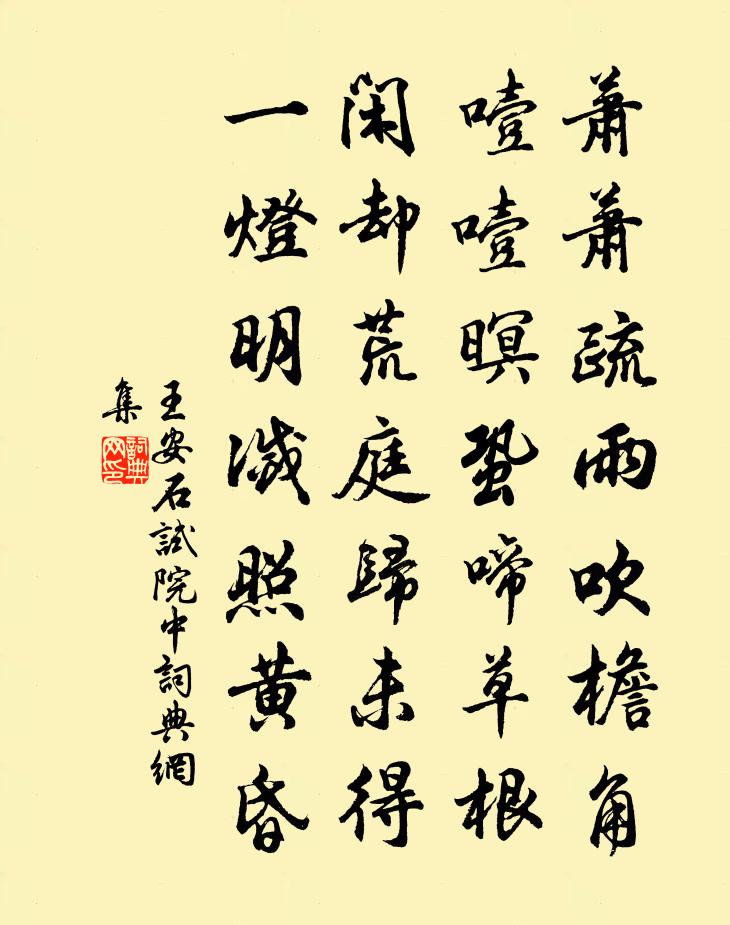 蕭蕭疏雨吹檐角
噎噎暝蛩啼草根
閑却荒庭歸未得
一燈明滅照黃昏
王安石試院中詞典網
集
詞典網印